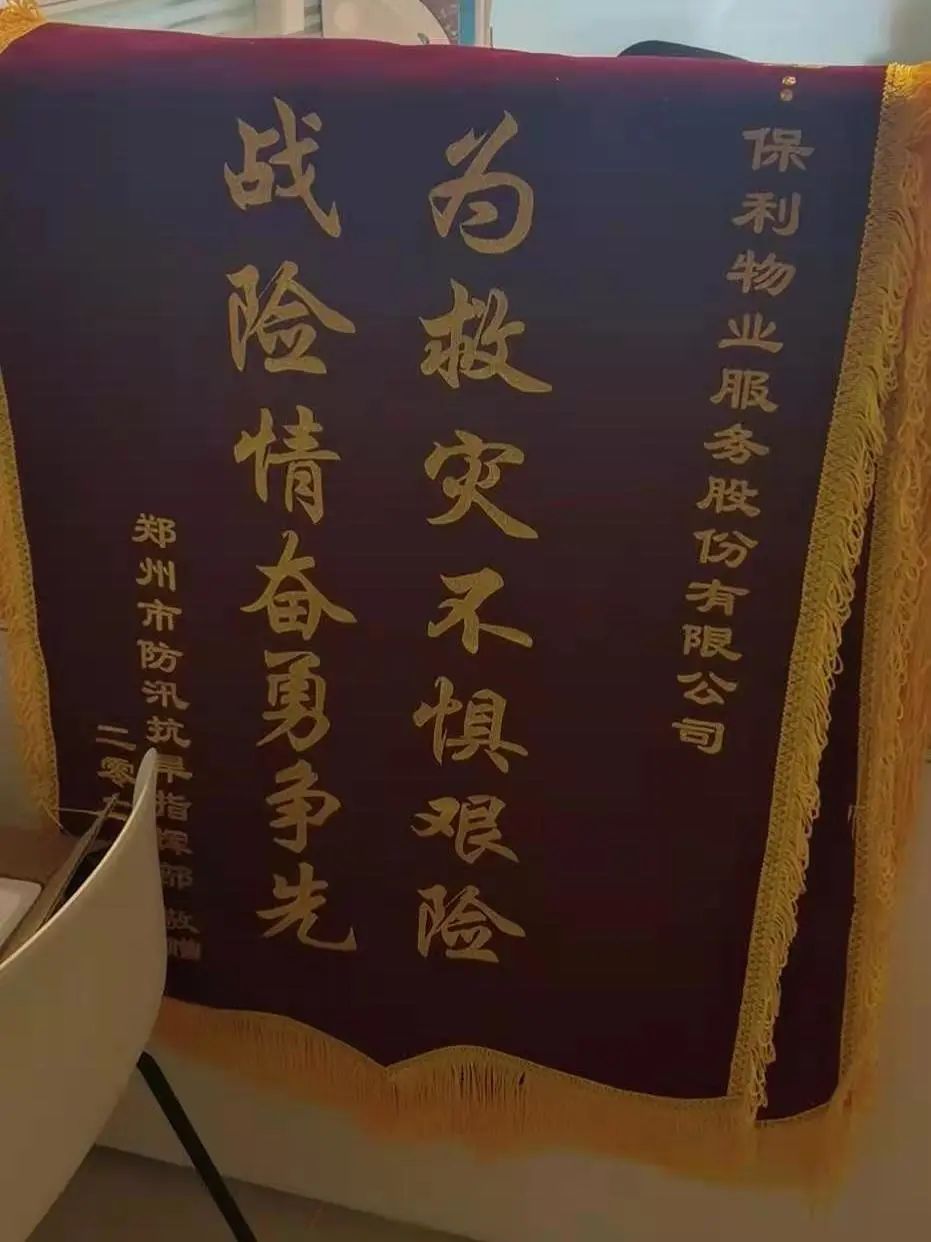 保利物业服务股份有限公司
为救灾不惧艰险
战险情奋勇争先
郑州市防汛抗旱指挥部 敬赠
二零二